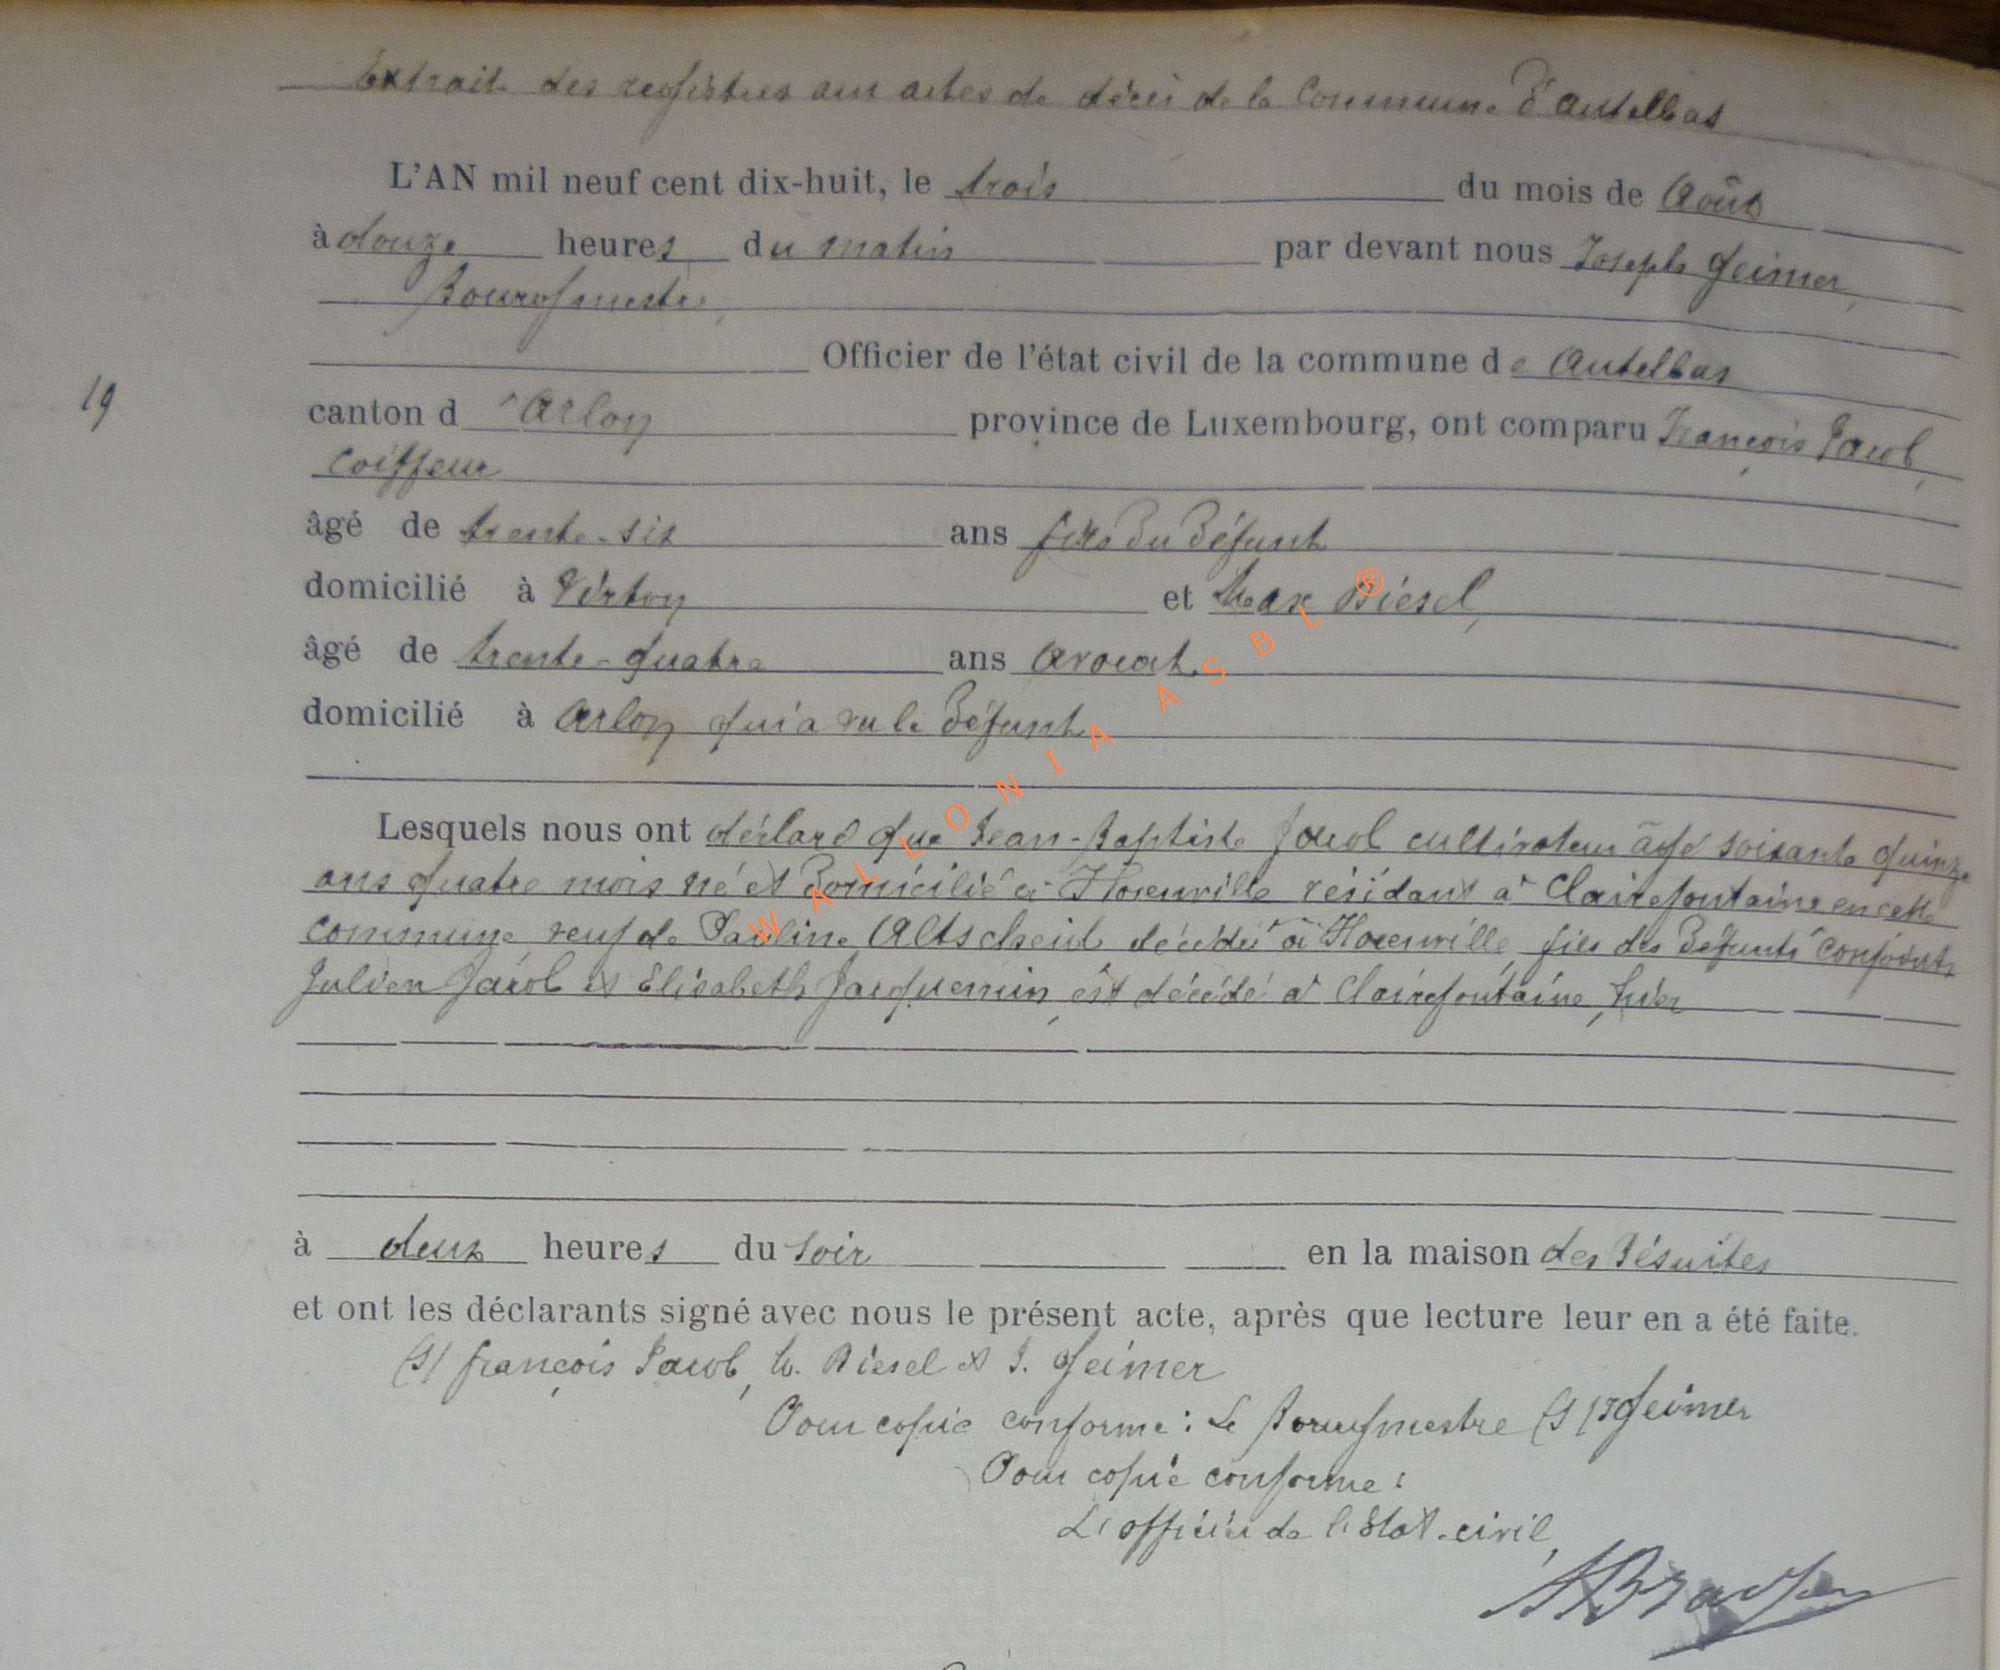 Extrait des registres aux actes de décès de la Commune d'Autelbas
L'AN mil neuf cent dix-huit, le trois du mois de Août
à douze heures du matin par devant nous Joseph Geimer,
Bourgmestre,
Officier de l'état civil de la commune de Autelbas
19
canton d'Arlon province de Luxembourg, ont comparu François Jacob,
coiffeur
âgé de trente-six ans fils du défunt
domicilié à Virton et Max Biesel,
âgé de trente-quatre ans avocat
domicilié à Arlon qui a vu le défunt
Lesquels nous ont déclaré que Jean-Baptiste Jacob cultivateur âgé soixante quinze
ans quatre mois né et domicilié à Honenville résidant à Clairefontaine en cette
commune, veuf de Pauline Altscheid décédée à Honenville, fils des défunts conjoints
Julien Jacob et Elisabeth Jacquemin, est décédé à Clairefontaine, hier
à deux heures du soir en la maison des Jésuites
et ont les déclarants signé avec nous le présent acte, après que lecture leur en a été faite.
(s) François Jacob, M. Biesel et J. Geimer
Pour copie conforme : Le Bourgmestre (s) J Geimer
Pour copie conforme :
L'officier de l'état-civil,
WALLONIA ASBL ®